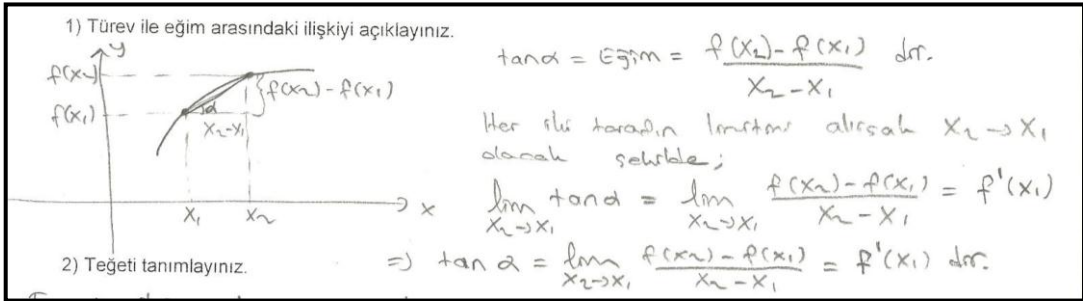 1) Türev ile eğim arasındaki ilişkiyi açıklayınız.
y
f(x₂)
f(x₁)
f(x₂) - f(x₁)
α
x₂-x₁
x₁ x₂ x
tanα = Eğim = f(x₂) - f(x₁) / x₂ - x₁ dır.
Her iki tarafın limitini alırsak x₂ → x₁
olacak şekilde;
lim x₂→x₁ tanα = lim x₂→x₁ f(x₂) - f(x₁) / x₂ - x₁ = f'(x₁)
⇒ tan α = lim x₂→x₁ f(x₂) - f(x₁) / x₂ - x₁ = f'(x₁) dır.
2) Teğeti tanımlayınız.